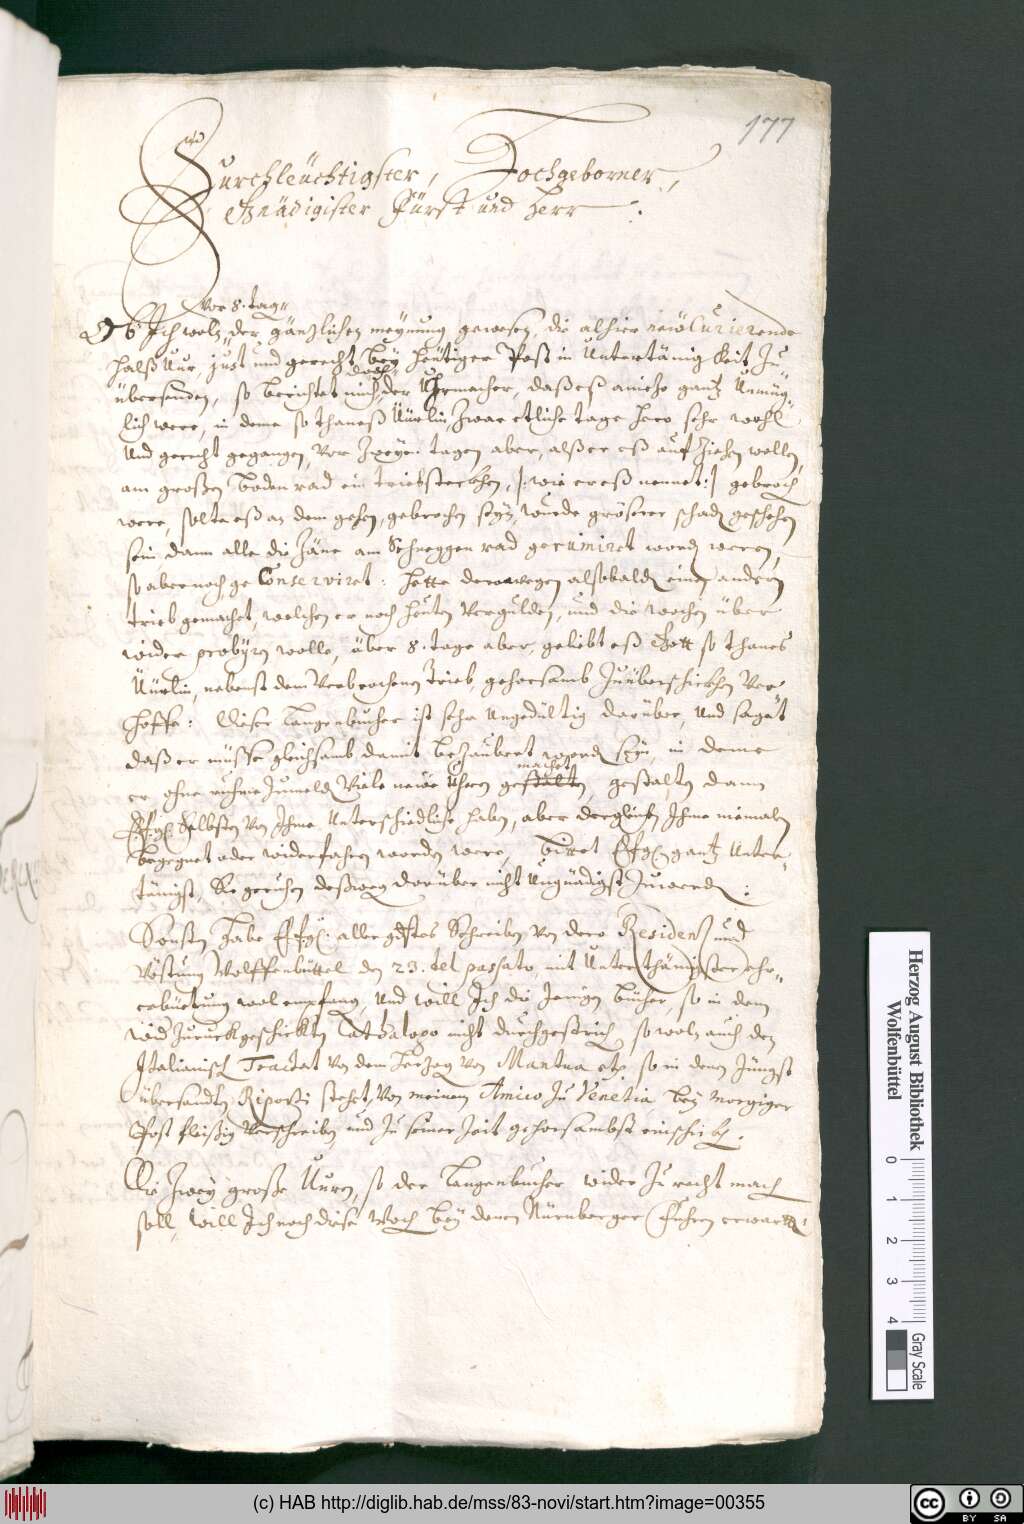 177
Durchleüchtigster, Hochgeborner,
Gnädigister Fürst und Herr :
vor 8. tag
Ob Ich wolen der gäntzlichen meynung gewesen, die alhier neüe Curierende
halß Uur, just und gerecht bey heütiger Post in Untertänigkeit zu
übersenden, so berichtet mich doch der Uhrmacher, daß eß anietzo gantz Unmüg-
lich were, in deme so thaneß Üürlin, zwar etliche tage hero sehr wohl
Und gerecht gegangen, Vor zweyen tagen aber, alß er eß auf ziehen wollen,
am großen boden rad ein triebsteckhen, /: wie er eß nennet :/ gebroch
were, solte eß an dem gehen, gebrochen seyn, würde gröserer schad geschehen
sein dann alle die Zäne am Schneggen rad geruiniret word weren,
so aber noch ge Conserviret : hette derowegen alsobald einen andern
trieb gemachet, welchen er noch heüten Vergulden, und die wochen über
wider probyrn wolle, über 8. tage aber, geliebt eß Gott so thanes
Üürlin, nebenst dem Verbrochenen Trieb, gehorsamb zuüberschickhen Ver-
hoffe : Diser Langenbucher ist sehr Ungedültig darüber, Und sagat
daß er müsse gleichsamb damit bezaubert word seyn, in deme
er ohne ruhmb zumeld Viele neüe Uhren machet gestalten, gestalten dann
E: F: G: Selbsten Von Ihme Unterschiedliche haben, aber dergleichen Ihme niemaln
begegnet oder widerfahren worden were, bittet E F G gantz Unter-
tänigst, Sie geruhen deßweg darüber nicht Ungnädigst zuwerden :
Sonsten habe E F G: aller gdstes Schreiben Von dero Residentz und
Vöstung Wolffenbüttel den 23. del passato, mit Unterthänigster ehr-
erbüetung wol empfang, Und will Ich die Jenigen bücher, so in dem
wid zuruckgeschickten Catalogo nicht durchgestrich, so wolen auch den
Italianisch Tractat Von dem Herzog Von Mantua etc. so in denen Jüngst
übersandten Riporti stehet, Von meinem Amico zu Venetia bey morgiger
Post fleißig Verschreiben und zu seiner Zeit gehorsambst einschickh.
Die zwey große Uurn, so der Langenbucher wider zu recht mach
soll, will Ich noch dise Woch bey denen Nürnberger Fuhren erwarten.
Herzog August Bibliothek
Wolfenbüttel
0 1 2 3 4
Gray Scale
(c) HAB http://diglib.hab.de/mss/83-novi/start.htm?image=00355
cc BY SA